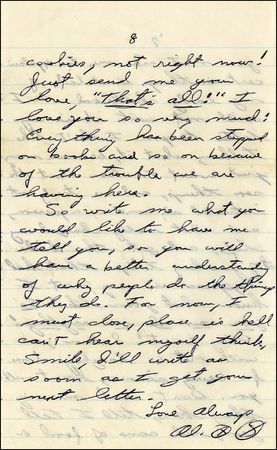 8
cookies, not right now!
Just send me your
love, "that's all!" I
love you so very much!
Everything has been stopped
on books and so on because
of the trouble we are
having here.
So write me what you
would like to have me
tell you, so you will
have a better understandg
of why people do the things
they do. For now, I
must close, place is hell
can't hear myself think,
Smile, I'll write as
soon as I get your
next letter.
Love Always